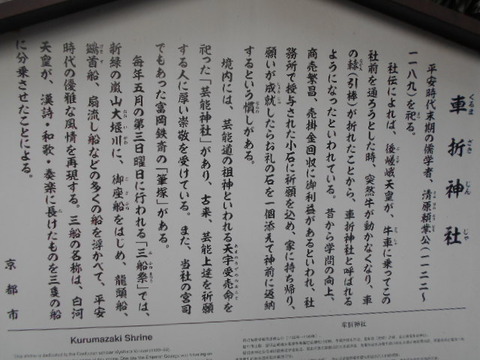 車折神社
くるまざきじんじゃ
平安時代末期の儒学者、清原頼業公(一一二二〜
一一八九)を祀る。
社伝によれば、後嵯峨天皇が、牛車に乗ってこの
社前を通ろうとした時、突然牛が動かなくなり、車
の轅(引棒)が折れたことから、車折神社と呼ばれる
ようになったといわれている。昔から学問の向上、
商売繁昌、売掛金回収に御利益があるといわれ、社
務所で授与された小石に祈願を込め、家に持ち帰り、
願いが成就したらお礼の石を一個添えて神前に返納
するという慣しがある。
境内には、芸能道の祖神といわれる天宇受売命を
祀った「芸能神社」があり、古来、芸能上達を祈願
する人に厚い崇敬を受けている。また、当社の宮司
でもあった富岡鉄斎の「筆塚」がある。
毎年五月の第三日曜日に行われる「三船祭」では、
新緑の嵐山大堰川に、御座船をはじめ、龍頭船、
鷁首船、扇流し船などの多くの船を浮かべて、平安
時代の優雅な風情を再現する。三船の名称は、白河
天皇が、漢詩・和歌・奏楽に長けたものを三隻の船
に分乗させたことによる。
京都市
Kurumazaki Shrine
车折神社